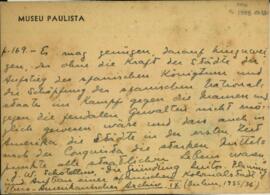 MUSEU PAULISTA
p. 169 - Es mag genügen, darauf hinzuwei-
sen, dass ohne die Kraft der Städte der
Aufstieg des spanischen Königtums und
die Schöpfung des spanischen National-
staats im Kampf gegen die Mauren und
gegen die feudalen Gewalten nicht mög-
lich gewesen wäre und dass auch in
Amerika die Städte in der ersten Zeit
nach der Conquista die starken Mittel-
punkte alles staatlichen Lebens waren
Die Gründung
Ibero-Amerikanisches Archiv IX (Berlin, 1935/36